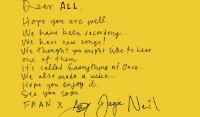 Dear ALL,
Hope you are well.
We have been recording...
We have new songs!
We thought you might like to hear
one of them.
It's called Everything at Once.
We also made a video...
Hope you enjoy it.
See you soon
FRAN X Neil